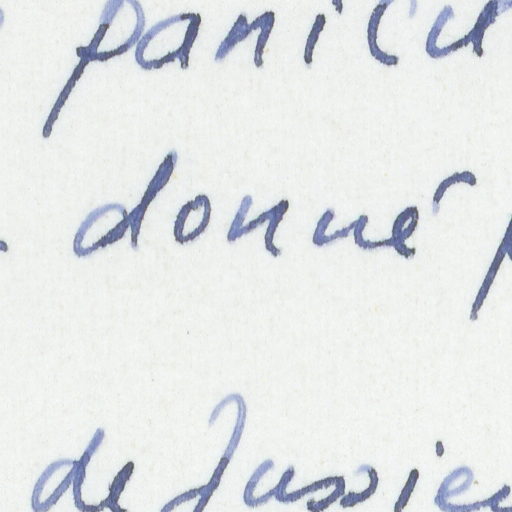 panicu
donné p
de Jussieu